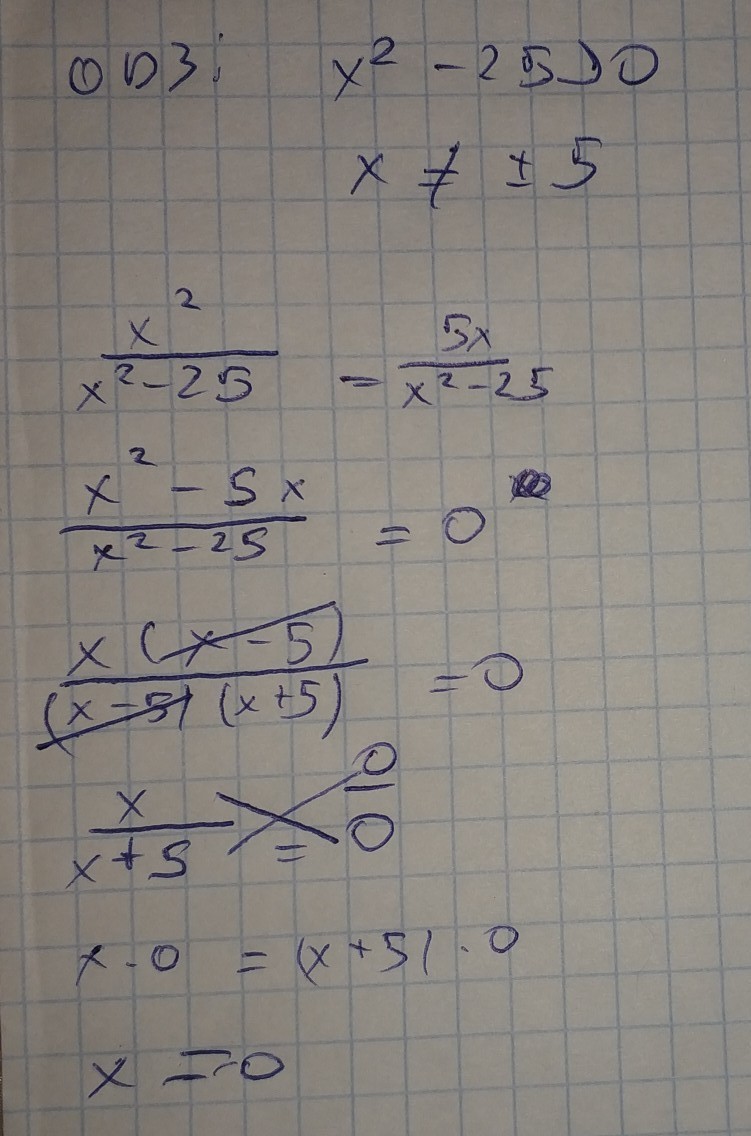 ОДЗ: x² - 25 > 0
x ≠ ± 5
x²/(x² - 25) - 5x/(x² - 25)
(x² - 5x)/(x² - 25) = 0
x(x - 5)/((x - 5)(x + 5)) = 0
x/(x + 5) = 0/0
x · 0 = (x + 5) · 0
x = 0